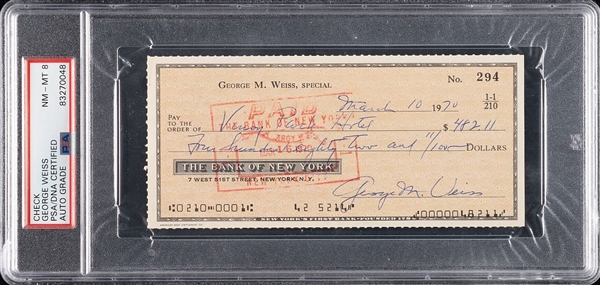 CHECK
GEORGE WEISS
PSA/DNA CERTIFIED
AUTO GRADE
NM - MT 8
83270048
GEORGE M. WEISS, SPECIAL
No. 294
March 10 1970
1-1
210
PAY
TO THE
ORDER OF Hotel $ 482.11
Four hundred eighty two and 11/100 DOLLARS
PAID
THE BANK OF NEW YORK
THE BANK OF NEW YORK
7 WEST 51ST STREET, NEW YORK, N.Y.
NEW
George M. Weiss
0210 0001 42 5214
NEW YORK'S FIRST BANK · FOUNDED 1784
0000048211